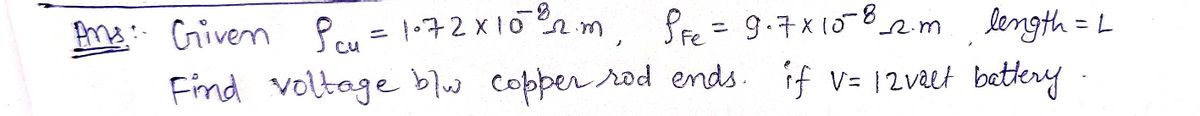 Ans:- Given ρcu = 1.72 x 10⁻⁸ Ω.m, ρFe = 9.7 x 10⁻⁸ Ω.m, length = L
Find voltage b/w copper rod ends. if V = 12 volt battery.